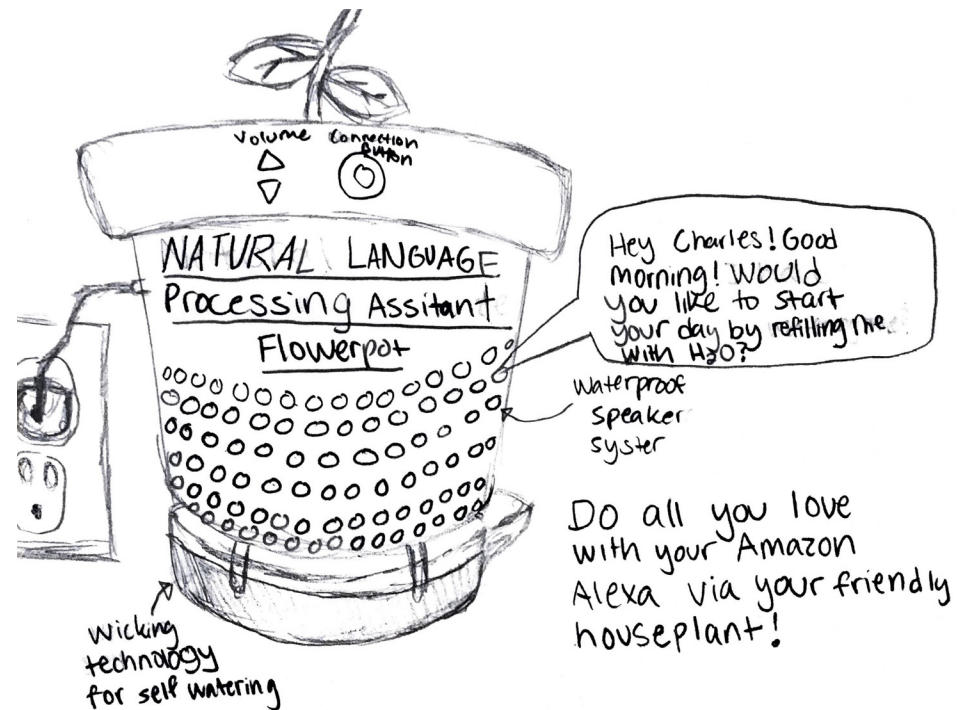 Volume
Connection
Button
NATURAL LANGUAGE
Processing Assitant
Flowerpot
Hey Charles! Good
morning! Would
you like to start
your day by refilling me
with H2O?
waterproof
speaker
syster
Do all you love
with your Amazon
Alexa via your friendly
houseplant!
wicking
technology
for self watering